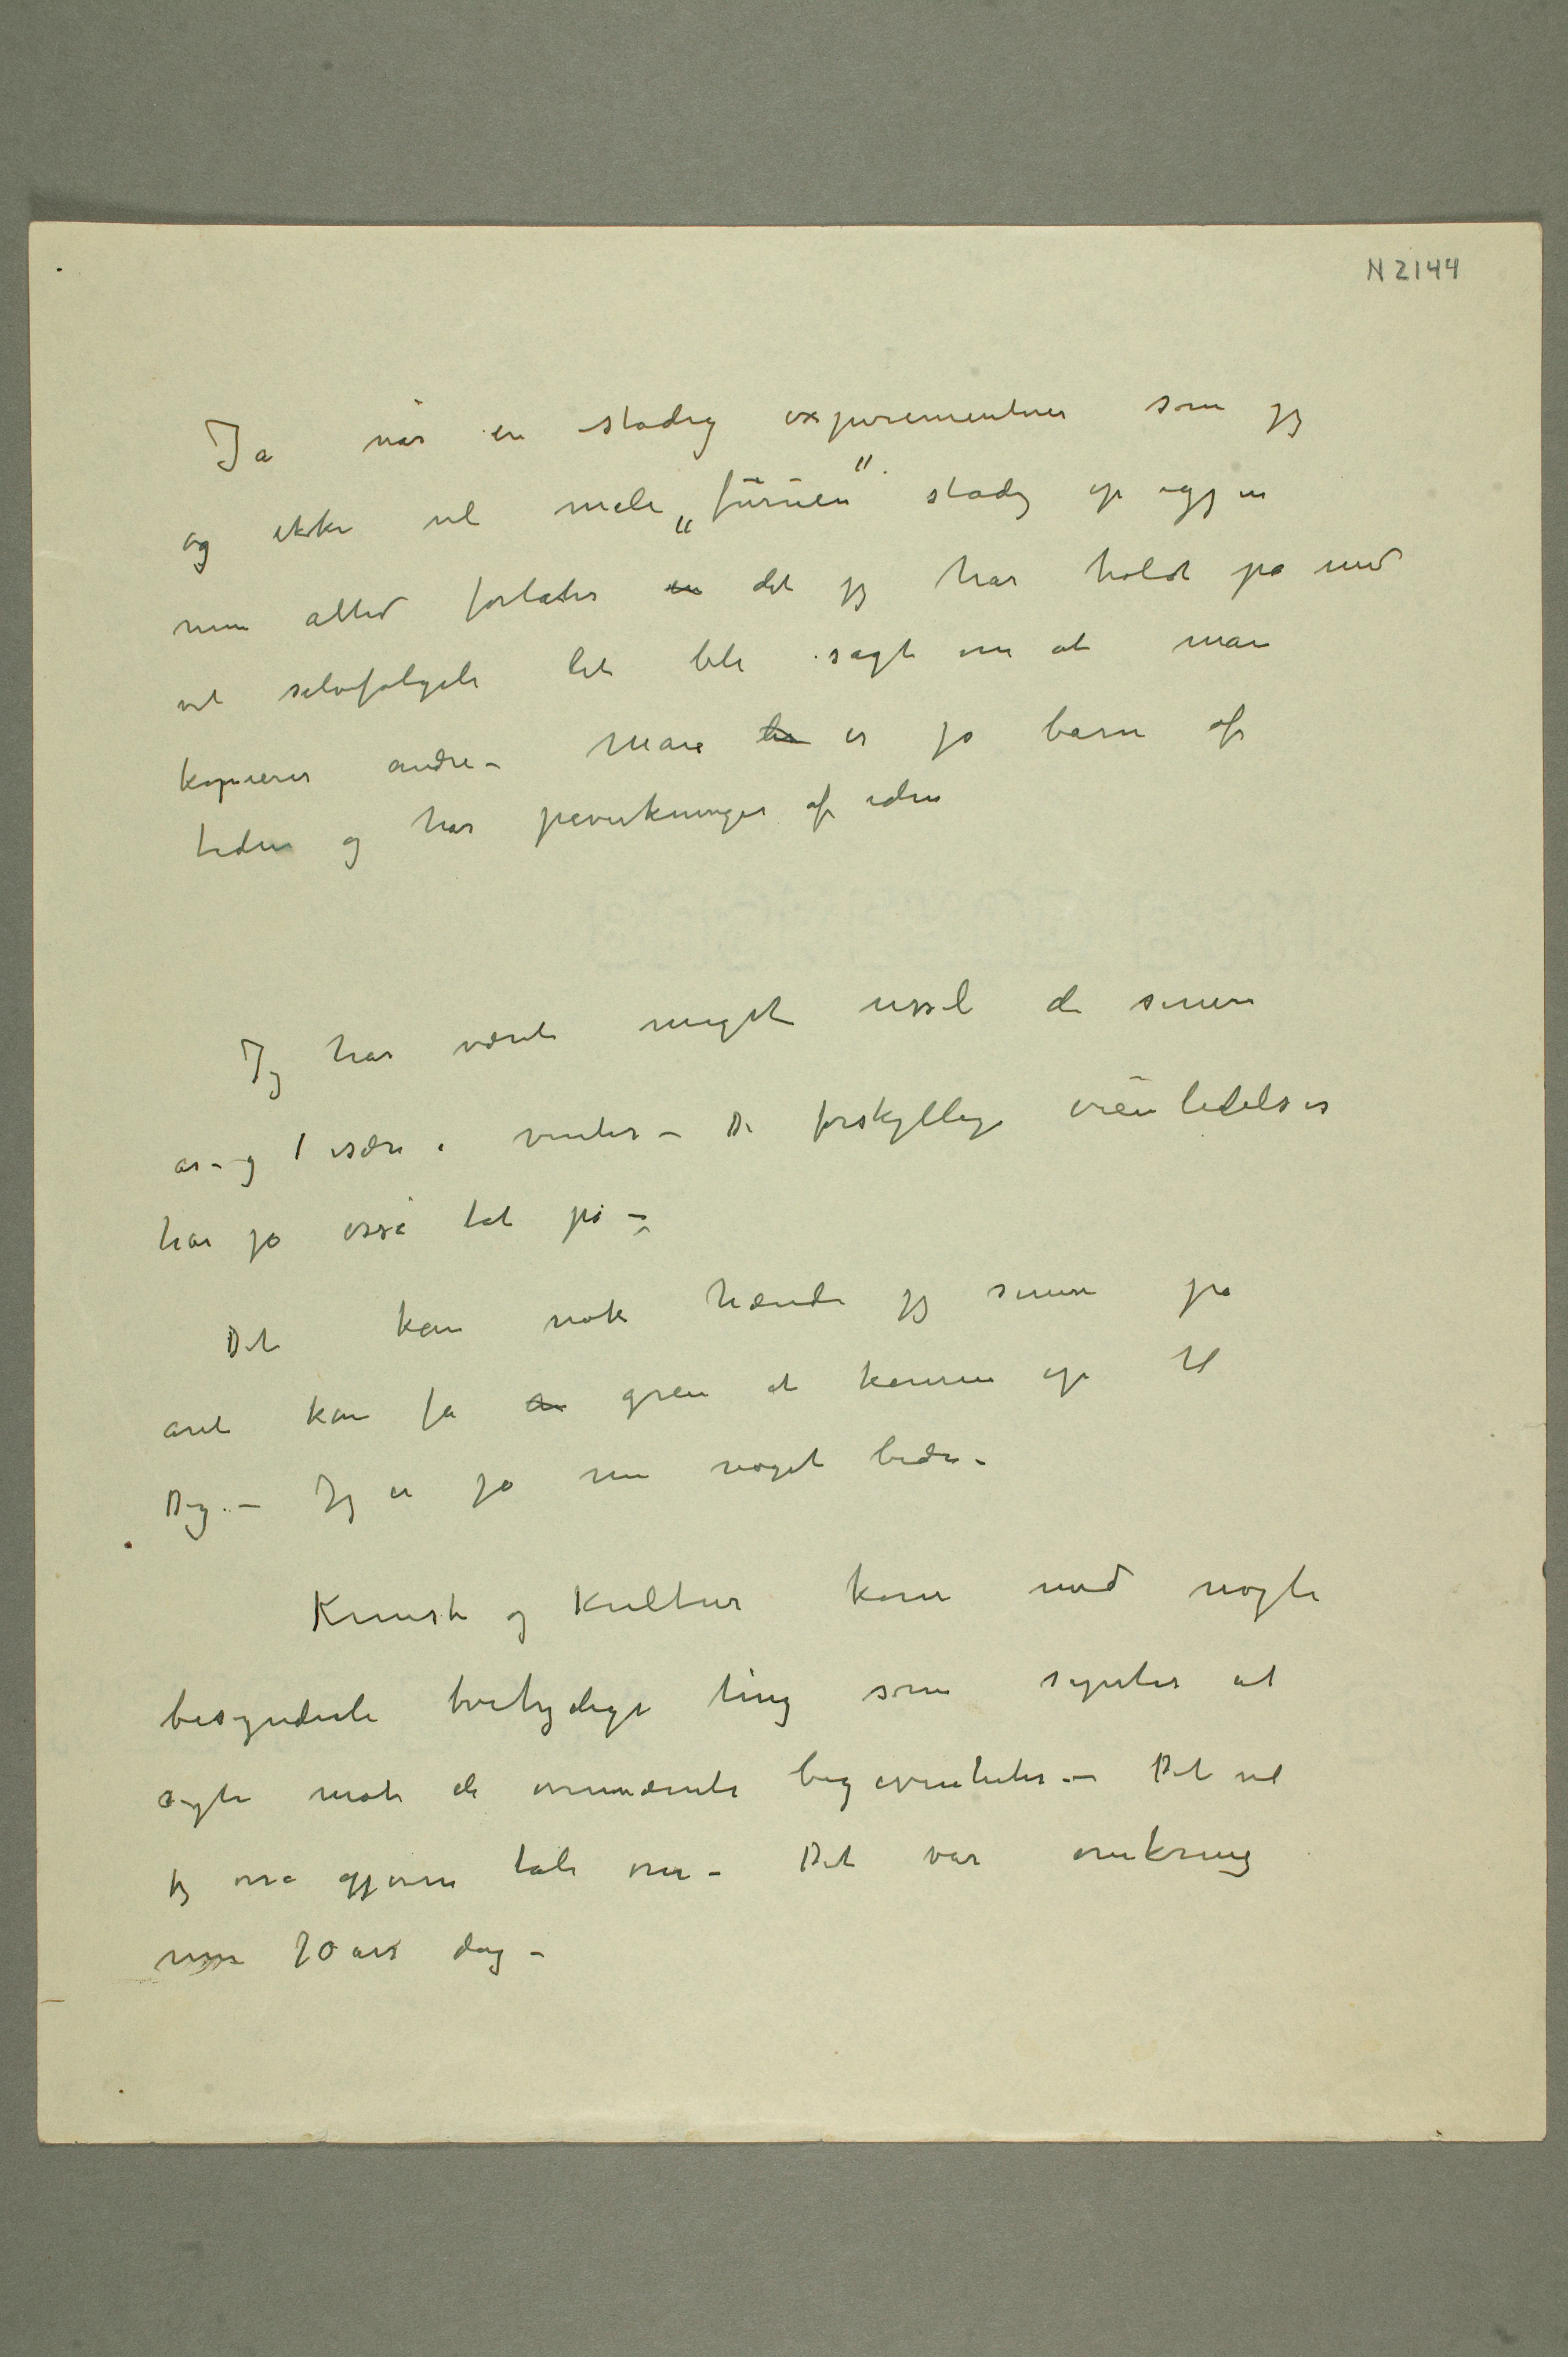 N 2144
Ja når en stadig experimenterer som jeg
og ikke vil male „furuen" stadig op igjen
men altid forlater en det jeg har holdt på med
vil selvfølgeli let bli sagt om at man
kopierer andre – Man bæ er jo barn af
tiden og har påvirkninger af iden
Jeg har været meget ussel de senere
år – og især i vinter – De forskjellige ubehageligheter
har jo også tat på –
Det kan nok hænde jeg senere på
året kan få en græn at komme op til
Dig. – Jeg er jo nu noget bedre –
Kunst og Kultur kom med nogle
besynderli tvetydige ting som syntes at
sigte mot de ovennævnte begivenheter – Det vil
jeg osså gjerne tale om – Det var omkring
min 70 års dag –